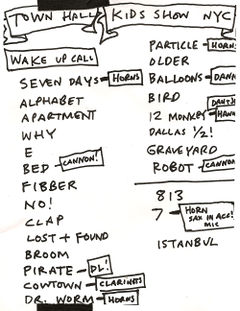 TOWN HALL KIDS SHOW NYC
WAKE UP CALL
SEVEN DAYS - HORNS
ALPHABET
APARTMENT
WHY
E
BED - CANNON!
FIBBER
NO!
CLAP
LOST + FOUND
BROOM
PIRATE - DL!
COWTOWN - CLARINETS
DR. WORM - HORNS
PARTICLE - HORNS
OLDER
BALLOONS - DANN
BIRD
12 MONKEY
DALLAS 1/2!
GRAVEYARD
ROBOT - CANNON
813
7 - HORN
SAX IN ACC!
MIC
ISTANBUL